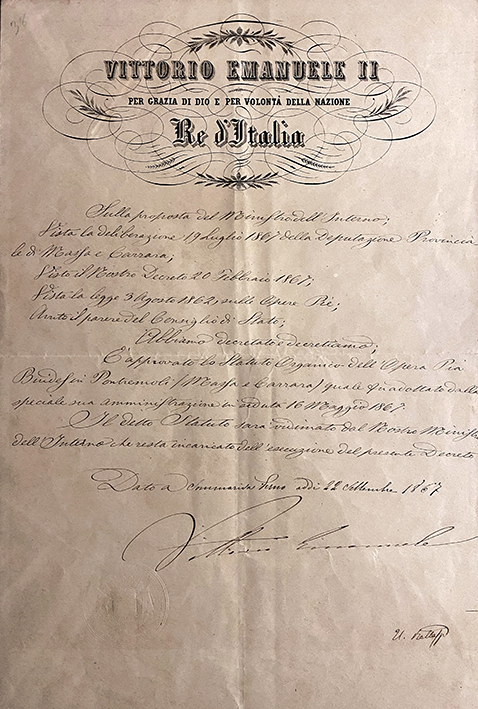 VITTORIO EMANUELE II
PER GRAZIA DI DIO E PER VOLONTÀ DELLA NAZIONE
Re d'Italia
Sulla proposta del Ministro dell'Interno;
Vista la deliberazione 19 Luglio 1867 della Deputazione Provincia
le di Massa e Carrara;
Visto il Nostro Decreto 20 Febbraio 1867;
Vista la legge 3 Agosto 1862, sulle Opere Pie;
Avuto il parere del Consiglio di Stato;
Abbiamo decretato e decretiamo;
È approvato lo Statuto Organico dell'Opera Pia
in Pontremoli (Massa e Carrara) quale fu adottato dalla
speciale sua amministrazione in seduta 16 Maggio 1867.
Il detto Statuto sarà vidimato dal Nostro Ministro
dell'Interno che resta incaricato dell'esecuzione del presente Decreto
Dato a addì 22 Settembre 1867
Vittorio Emanuele
U. Rattazzi